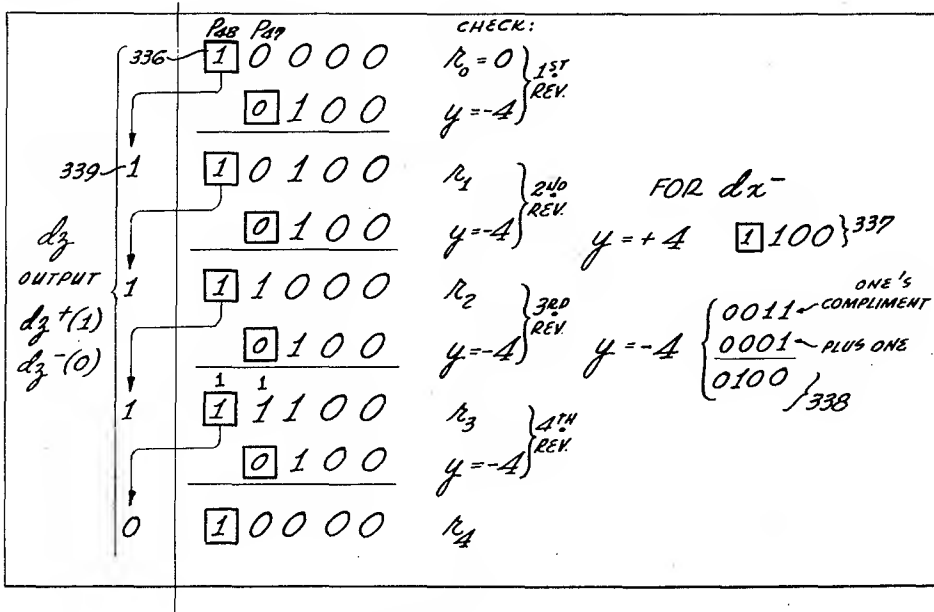 P48 P47 CHECK:
336 1 0 0 0 0 r0 = 0 } 1ST REV.
0 1 0 0 y = -4
339 1 1 0 1 0 0 r1 } 2ND REV.
0 1 0 0 y = -4
1 1 1 0 0 0 r2 } 3RD REV.
0 1 0 0 y = -4
1 1
1 1 1 1 0 0 r3 } 4TH REV.
0 1 0 0 y = -4
0 1 0 0 0 0 r4
dz
OUTPUT
dz+(1)
dz-(0)
FOR dx-
y = +4 1 100 } 337
y = -4 { 0011 ONE'S COMPLIMENT
0001 PLUS ONE
0100 } 338